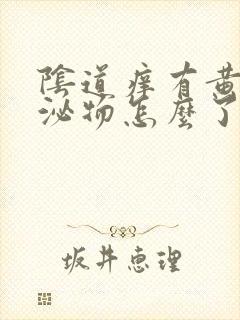 陰道痒有黃
泌物怎麼了
坂井恵理